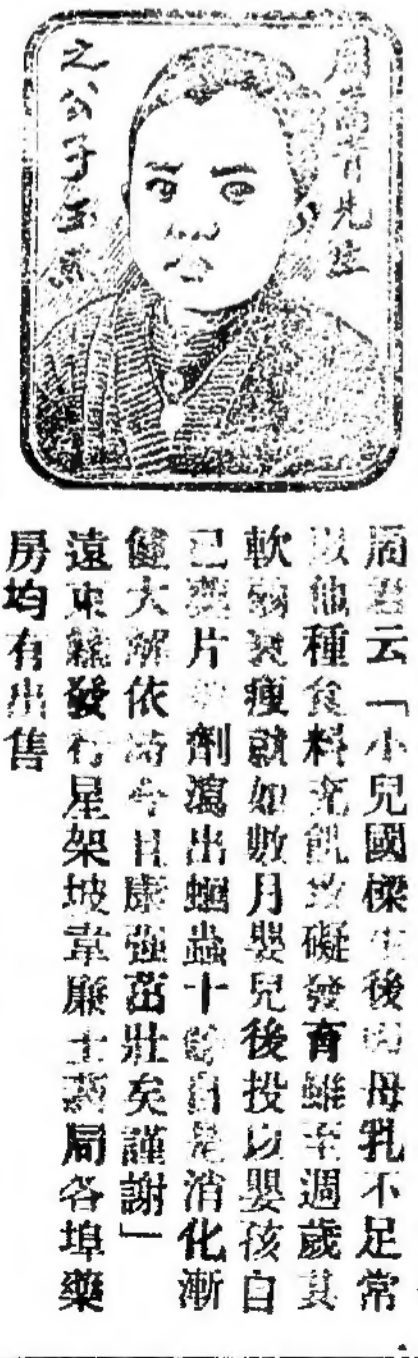 周
先生
之公子
周君云「小兒國樑生後因母乳不足常
以他種食料充飢致礙發育雖至週歲其
軟弱衰瘦就如數月嬰兒後投以嬰孩自
己藥片 劑瀉出蛔蟲十餘自是消化漸
健大 依 今日康强茁壯矣謹謝」
遠東總發行星架坡韋廉士藥局各埠藥
房均有出售